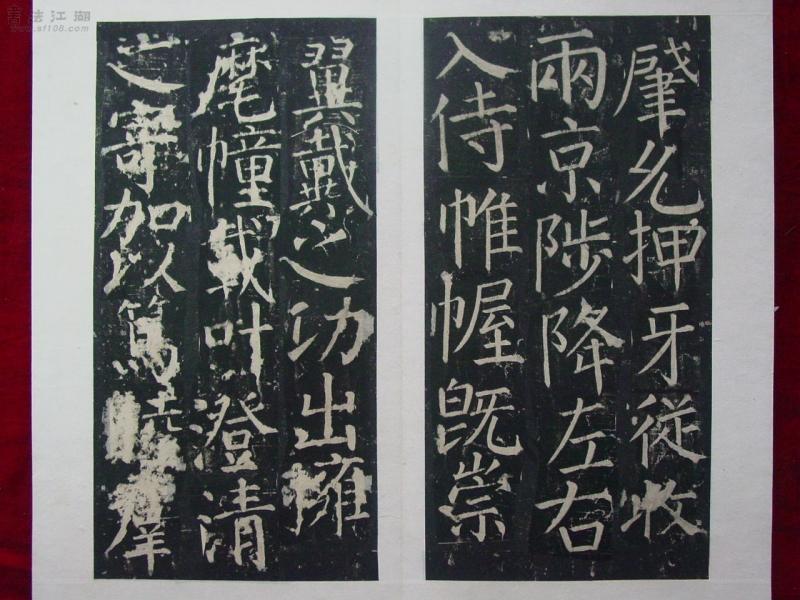 书法江湖
www.sf108.com
肇允押牙從收
兩京陟降左右
入侍帷幄既崇
翼戴之功出擁
麾幢載叶澄清
之寄加以篤睦羣